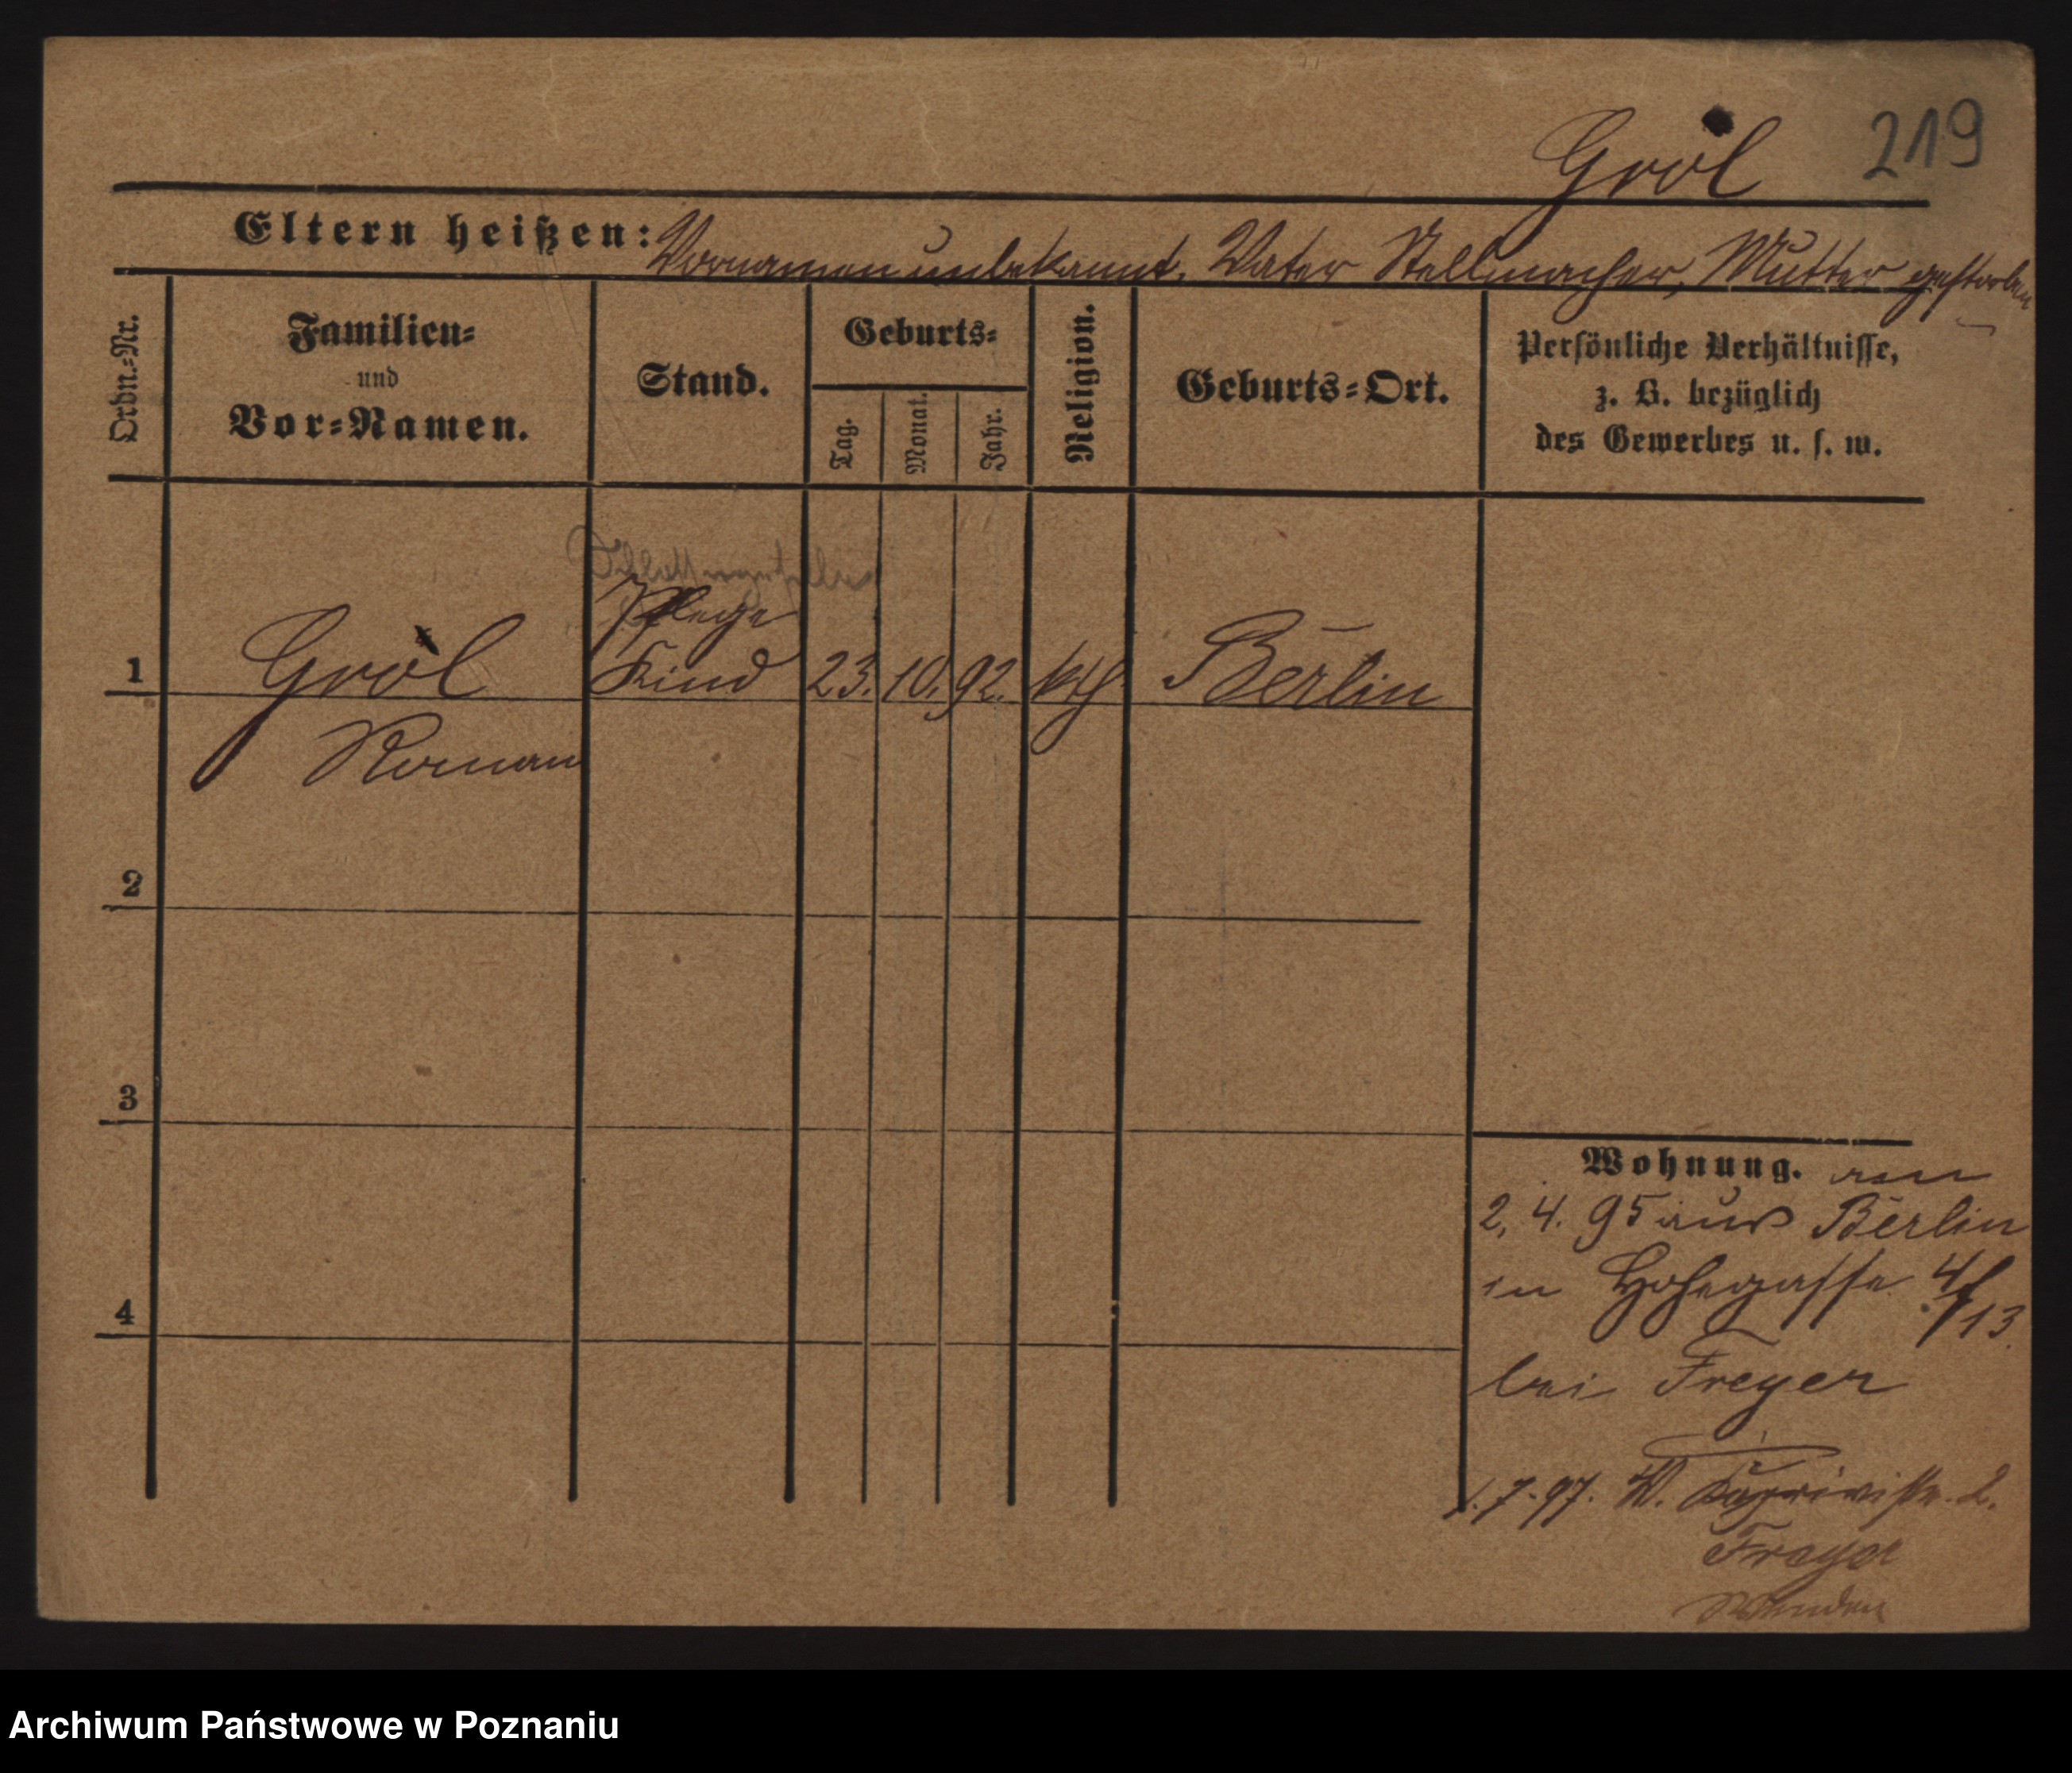 Gról 219
Eltern heißen: Vornamen unbekannt, Vater Stellmacher, Mutter gestorben
Ordn.=Nr.
Familien=
und
Vor=Namen.
Stand.
Geburts=
Tag.
Monat.
Jahr.
Religion.
Geburts=Ort.
Persönliche Verhältnisse,
z. B. bezüglich
des Gewerbes u. s. w.
Pflege
1 Gról Kind 23. 10. 92. kth Berlin
Roman
2
3
4
Wohnung. am
2. 4. 95 aus Berlin
in Hohegasse 4/
13
bei Freyer
1. 7. 97. W. Caprivistr. 2.
Freyer
Wenden
Archiwum Państwowe w Poznaniu